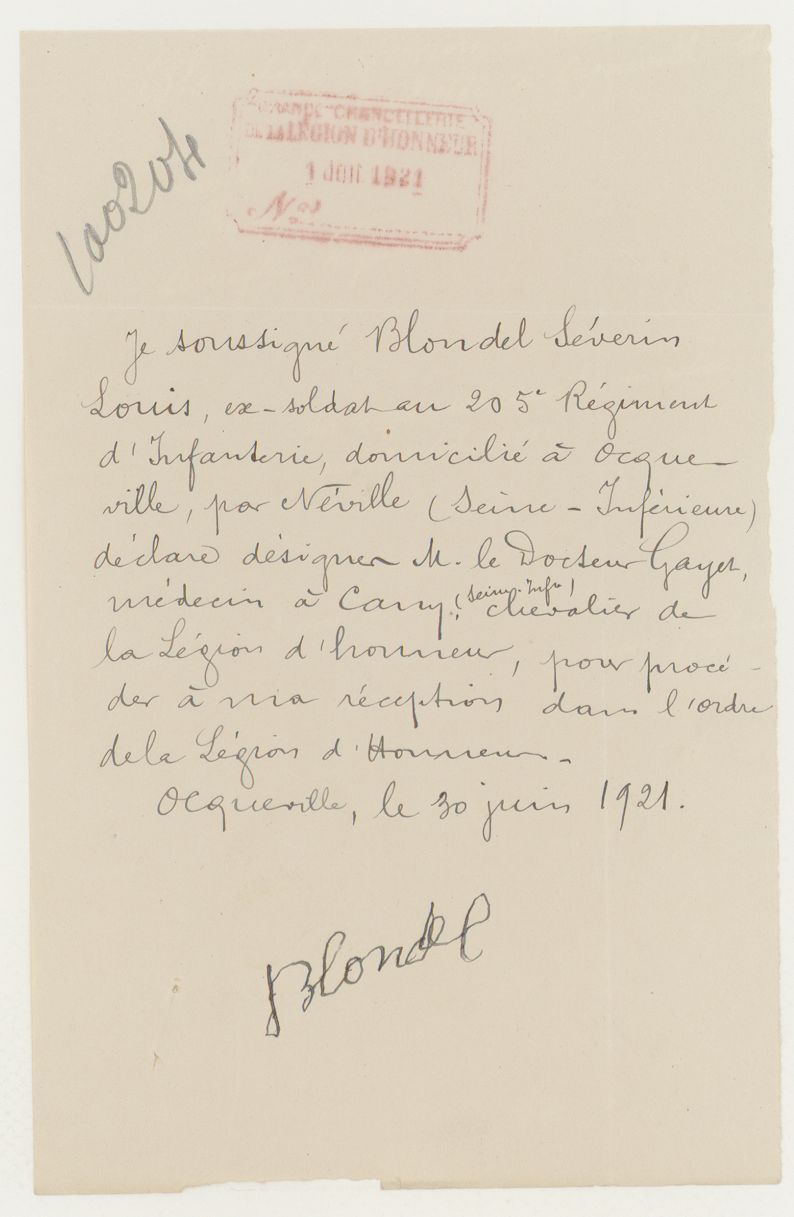 100204
GRANDE CHANCELLERIE
DE LA LÉGION D'HONNEUR
1921
Nos
Je soussigné Blondel Séverin
Louis, ex-soldat au 205e Régiment
d'Infanterie, domicilié à Ocque-
ville, par Néville (Seine-Inférieure)
déclare désigner M. le Docteur Gayet,
médecin à Cany, (Seine-Infre) chevalier de
la Légion d'honneur, pour procé-
der à ma réception dans l'ordre
de la Légion d'Honneur.
Ocqueville, le 30 juin 1921.
Blondel